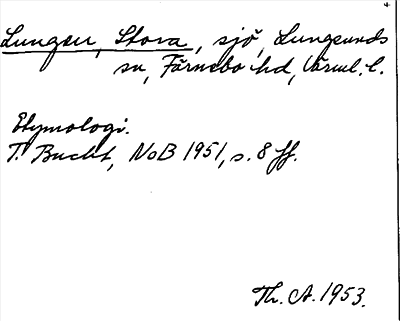 Lungen, Stora, sjö, Lungsunds
sn, Färnebo hd, Värml. l.
Etymologi.
T. Bucht, NoB 1951, s. 8 ff.
Th. A. 1953.